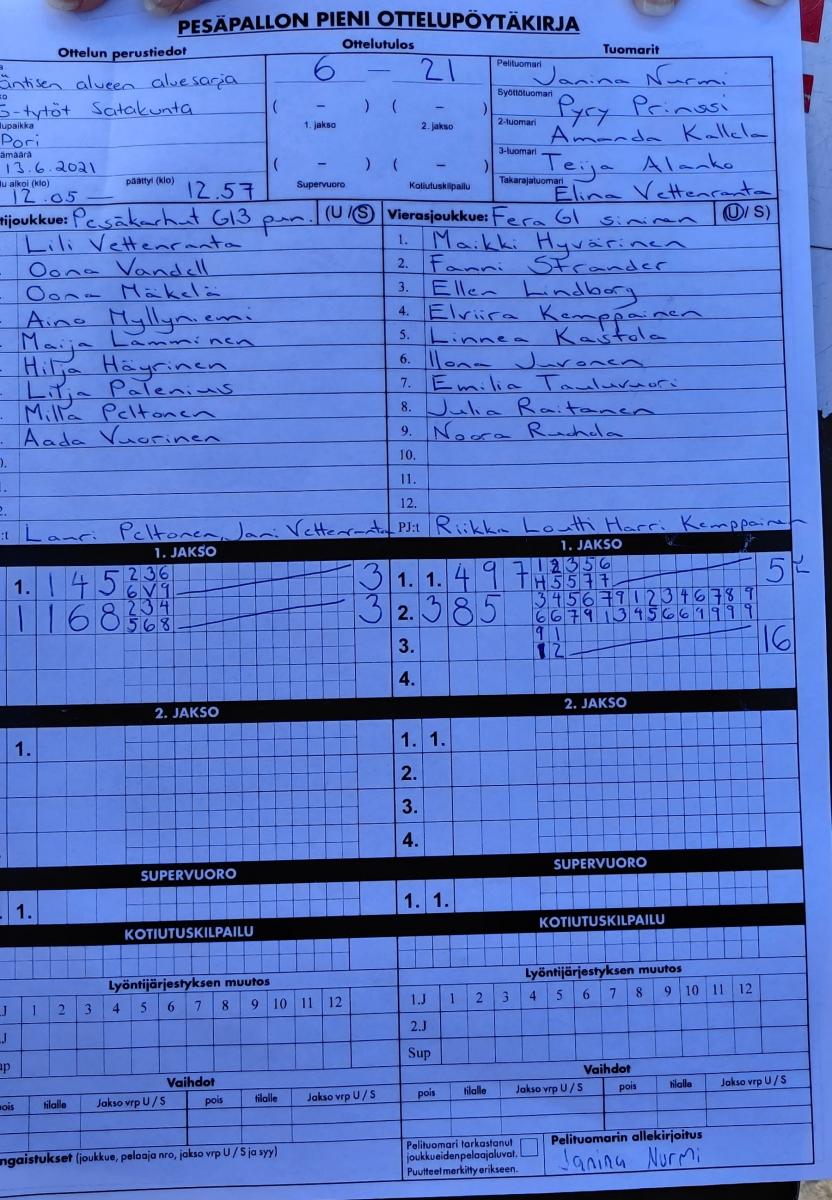 PESÄPALLON PIENI OTTELUPÖYTÄKIRJA
Ottelun perustiedot
Ottelutulos
Tuomarit
äntisen alueen aluesarja
-tytöt Satakunta
lupaikka
Pori
ämäärä
13.6.2021
lu alkoi (klo)
päättyi (klo)
12.05 — 12.57
6 — 21
( – ) ( – )
1. jakso 2. jakso
( – ) ( – )
Supervuoro Kotiutuskilpailu
Pelituomari Janina Nurmi
Syöttötuomari Pyry Prinssi
2-tuomari Amanda Kallela
3-tuomari Teija Alanko
Takarajatuomari Elina Vettenranta
tijoukkue: Pesäkarhut G13 pun. (U / S)
Lili Vettenranta
Oona Vandell
Oona Mäkelä
Aino Myllyniemi
Maija Lamminen
Hilja Häyrinen
Lilja Palenius
Milla Peltonen
Aada Vuorinen
Lauri Peltonen, Jani Vettenranta
Vierasjoukkue: Fera G1 sininen (U / S)
1. Maikki Hyvärinen
2. Fanni Strander
3. Ellen Lindborg
4. Elviira Kemppainen
5. Linnea Kastola
6. Ilona Juvonen
7. Emilia Tauluvuori
8. Julia Raitanen
9. Noora Ruohola
10.
11.
12.
PJ:t Riikka Loutti Harri Kemppainen
1. JAKSO
1. 1 4 5 236 3
6V9
1 1 6 8 234 3
568
1. JAKSO
1. 1. 4 9 7 12356 5
45577
2. 3 8 5 34567912346789
6679134566999
3. 91 16
12
4.
2. JAKSO
1.
2. JAKSO
1. 1.
2.
3.
4.
SUPERVUORO
1.
SUPERVUORO
1. 1.
KOTIUTUSKILPAILU
KOTIUTUSKILPAILU
Lyöntijärjestyksen muutos
.J 1 2 3 4 5 6 7 8 9 10 11 12
.J
up
Lyöntijärjestyksen muutos
1.J 1 2 3 4 5 6 7 8 9 10 11 12
2.J
Sup
Vaihdot
pois tilalle Jakso vrp U / S pois tilalle Jakso vrp U / S
Vaihdot
pois tilalle Jakso vrp U / S pois tilalle Jakso vrp U / S
ngaistukset (joukkue, pelaaja nro, jakso vrp U / S ja syy)
Pelituomari tarkastanut
joukkueidenpelaajaluvat.
Puutteet merkitty erikseen.
Pelituomarin allekirjoitus
Janina Nurmi